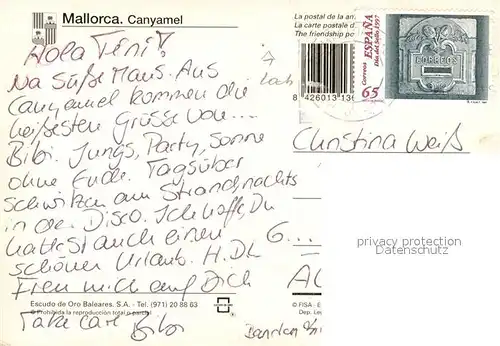 Mallorca. Canyamel
Hola Tini!
Na süße Maus. Aus
Canyamel kommen die
heißesten Grüsse von...
Bibi. Jungs, Party, Sonne
ohne Ende. Tagsüber
schwitzen am Strand nachts
in der Disco. Ich hoffe, Du
hattest auch einen
schönen Urlaub. H.D.L
Freu mich auf Dich
Escudo de Oro Baleares. S.A. - Tel. (971) 20 88 63
© Prohibida la reproducción total o parcial
Take care Bibi
La postal de la am
La carte postale d
The friendship po
8 426013 13
Correos ESPAÑA
Día del Sello 1997
65
CORREOS
Christina Weiß
G...
privacy protection
Datenschutz
© FISA - E
Dep. Leg